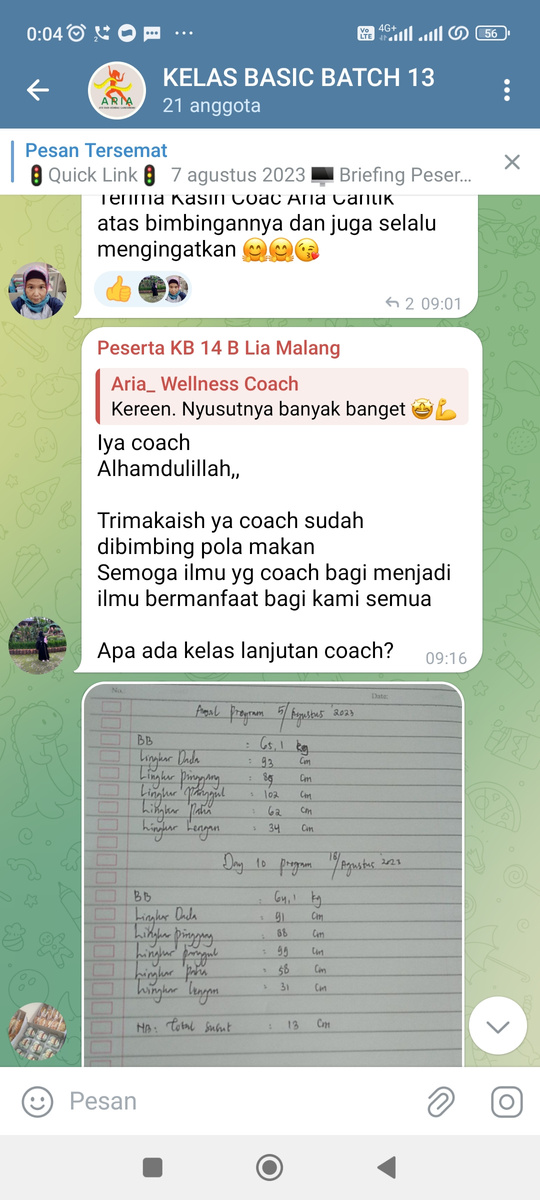 0:04
4G+
Vo
LTE
56
KELAS BASIC BATCH 13
21 anggota
ARIA
Pesan Tersemat
🚦Quick Link🚦 7 agustus 2023 🖥️ Briefing Peser...
Terima Kasih Coac Aria Cantik
atas bimbingannya dan juga selalu
mengingatkan 🤗🤗😘
👍
2 09:01
Peserta KB 14 B Lia Malang
Aria_ Wellness Coach
Kereen. Nyusutnya banyak banget 🤩💪
Iya coach
Alhamdulillah,,
Trimakaish ya coach sudah
dibimbing pola makan
Semoga ilmu yg coach bagi menjadi
ilmu bermanfaat bagi kami semua
Apa ada kelas lanjutan coach?
09:16
No.
Date:
Awal program 5/Agustus 2023
BB : 65,1 kg
Lingkar Dada : 93 Cm
Lingkar pinggang : Cm
Lingkar Panggul : 102 Cm
Lingkar paha : 62 Cm
Lingkar Lengan : 34 Cm
Day 10 program 18/Agustus 2023
BB : 64,1 kg
Lingkar Dada : 91 Cm
Lingkar pinggang : 88 Cm
Lingkar panggul : 99 Cm
Lingkar paha : 58 Cm
Lingkar lengan : 31 Cm
NB: Total susut : 13 Cm
Pesan